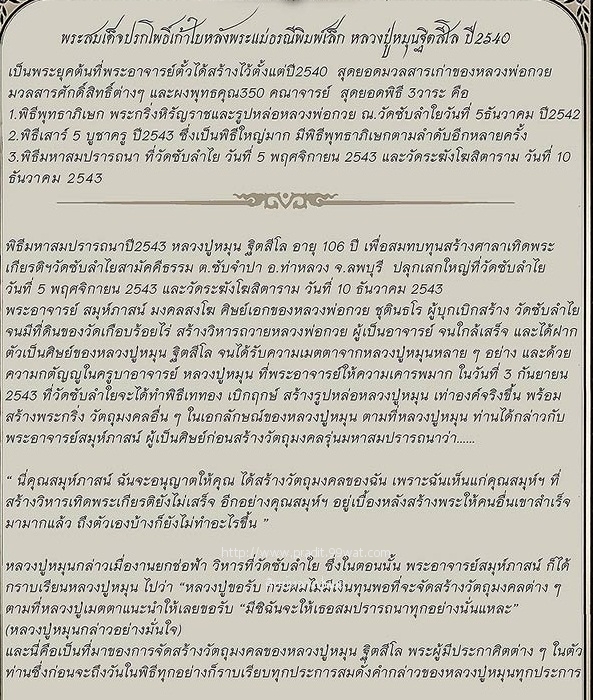 พระสมเด็จปรกโพธิ์เก้าใบหลังพระแม่ธรณีพิมพ์เล็ก หลวงปู่หมุนฐิตสีโล ปี2540
เป็นพระยุคต้นที่พระอาจารย์ตั้วได้สร้างไว้ตั้งแต่ปี2540 สุดยอดมวลสารเก่าของหลวงพ่อกวย
มวลสารศักดิ์สิทธิ์ต่างๆ และผงพุทธคุณ350 คณาจารย์ สุดยอดพิธี 3วาระ คือ
1.พิธีพุทธาภิเษก พระกริ่งหิรัญราชและรูปหล่อหลวงพ่อกวย ณ.วัดซับลำใยวันที่ 5ธันวาคม ปี2542
2.พิธีเสาร์ 5 บูชาครู ปี2543 ซึ่งเป็นพิธีใหญ่มาก มีพิธีพุทธาภิเษกตามลำดับอีกหลายครั้ง
3.พิธีมหาสมปรารถนา ที่วัดซับลำไย วันที่ 5 พฤศจิกายน 2543 และวัดระฆังโฆสิตาราม วันที่ 10
ธันวาคม 2543
พิธีมหาสมปรารถนาปี2543 หลวงปู่หมุน ฐิตสีโล อายุ 106 ปี เพื่อสมทบทุนสร้างศาลาเทิดพระ
เกียรติฯวัดซับลำใยสามัคคีธรรม ต.ซับจำปา อ.ท่าหลวง จ.ลพบุรี ปลุกเสกใหญ่ที่วัดซับลำไย
วันที่ 5 พฤศจิกายน 2543 และวัดระฆังโฆสิตาราม วันที่ 10 ธันวาคม 2543
พระอาจารย์ สมุห์ภาสน์ มงคลสงโฆ ศิษย์เอกของหลวงพ่อกวย ชุตินธโร ผู้บุกเบิกสร้าง วัดซับลำไย
จนมีที่ดินของวัดเกือบร้อยไร่ สร้างวิหารถวายหลวงพ่อกวย ผู้เป็นอาจารย์ จนใกล้เสร็จ และได้ฝาก
ตัวเป็นศิษย์ของหลวงปู่หมุน ฐิตสีโล จนได้รับความเมตตาจากหลวงปู่หมุนหลาย ๆ อย่าง และด้วย
ความกตัญญูในครูบาอาจารย์ หลวงปู่หมุน ที่พระอาจารย์ให้ความเคารพมาก ในวันที่ 3 กันยายน
2543 ที่วัดซับลำใยจะได้ทำพิธีเททอง เบิกฤกษ์ สร้างรูปหล่อหลวงปู่หมุน เท่าองค์จริงขึ้น พร้อม
สร้างพระกริ่ง วัตถุมงคลอื่น ๆ ในเอกลักษณ์ของหลวงปู่หมุน ตามที่หลวงปู่หมุน ท่านได้กล่าวกับ
พระอาจารย์สมุห์ภาสน์ ผู้เป็นศิษย์ก่อนสร้างวัตถุมงคลรุ่นมหาสมปรารถนาว่า......
“ นี่คุณสมุห์ภาสน์ ฉันจะอนุญาตให้คุณ ได้สร้างวัตถุมงคลของฉัน เพราะฉันเห็นแก่คุณสมุห์ฯ ที่
สร้างวิหารเทิดพระเกียรติยังไม่เสร็จ อีกอย่างคุณสมุห์ฯ อยู่เบื้องหลังสร้างพระให้คนอื่นเขาสำเร็จ
มามากแล้ว ถึงตัวเองบ้างก็ยังไม่ทำอะไรขึ้น ”
http://www.pradit.99wat.com
หลวงปู่หมุนกล่าวเมื่องานยกช่อฟ้า วิหารที่วัดซับลำใย ซึ่งในตอนนั้น พระอาจารย์สมุห์ภาสน์ ก็ได้
กราบเรียนหลวงปู่หมุน ไปว่า “หลวงปู่ขอรับ กระผมไม่มีเงินทุนพอที่จะจัดสร้างวัตถุมงคลต่าง ๆ
ตามที่หลวงปู่เมตตาแนะนำให้เลยขอรับ “มีซิฉันจะให้เธอสมปรารถนาทุกอย่างนั่นแหละ”
(หลวงปู่หมุนกล่าวอย่างมั่นใจ)
และนี่คือเป็นที่มาของการจัดสร้างวัตถุมงคลของหลวงปู่หมุน ฐิตสีโล พระผู้มีประกาศิตต่าง ๆ ในตัว
ท่านซึ่งก่อนจะถึงวันในพิธีทุกอย่างก็ราบเรียบทุกประการสมดั่งคำกล่าวของหลวงปู่หมุนทุกประการ